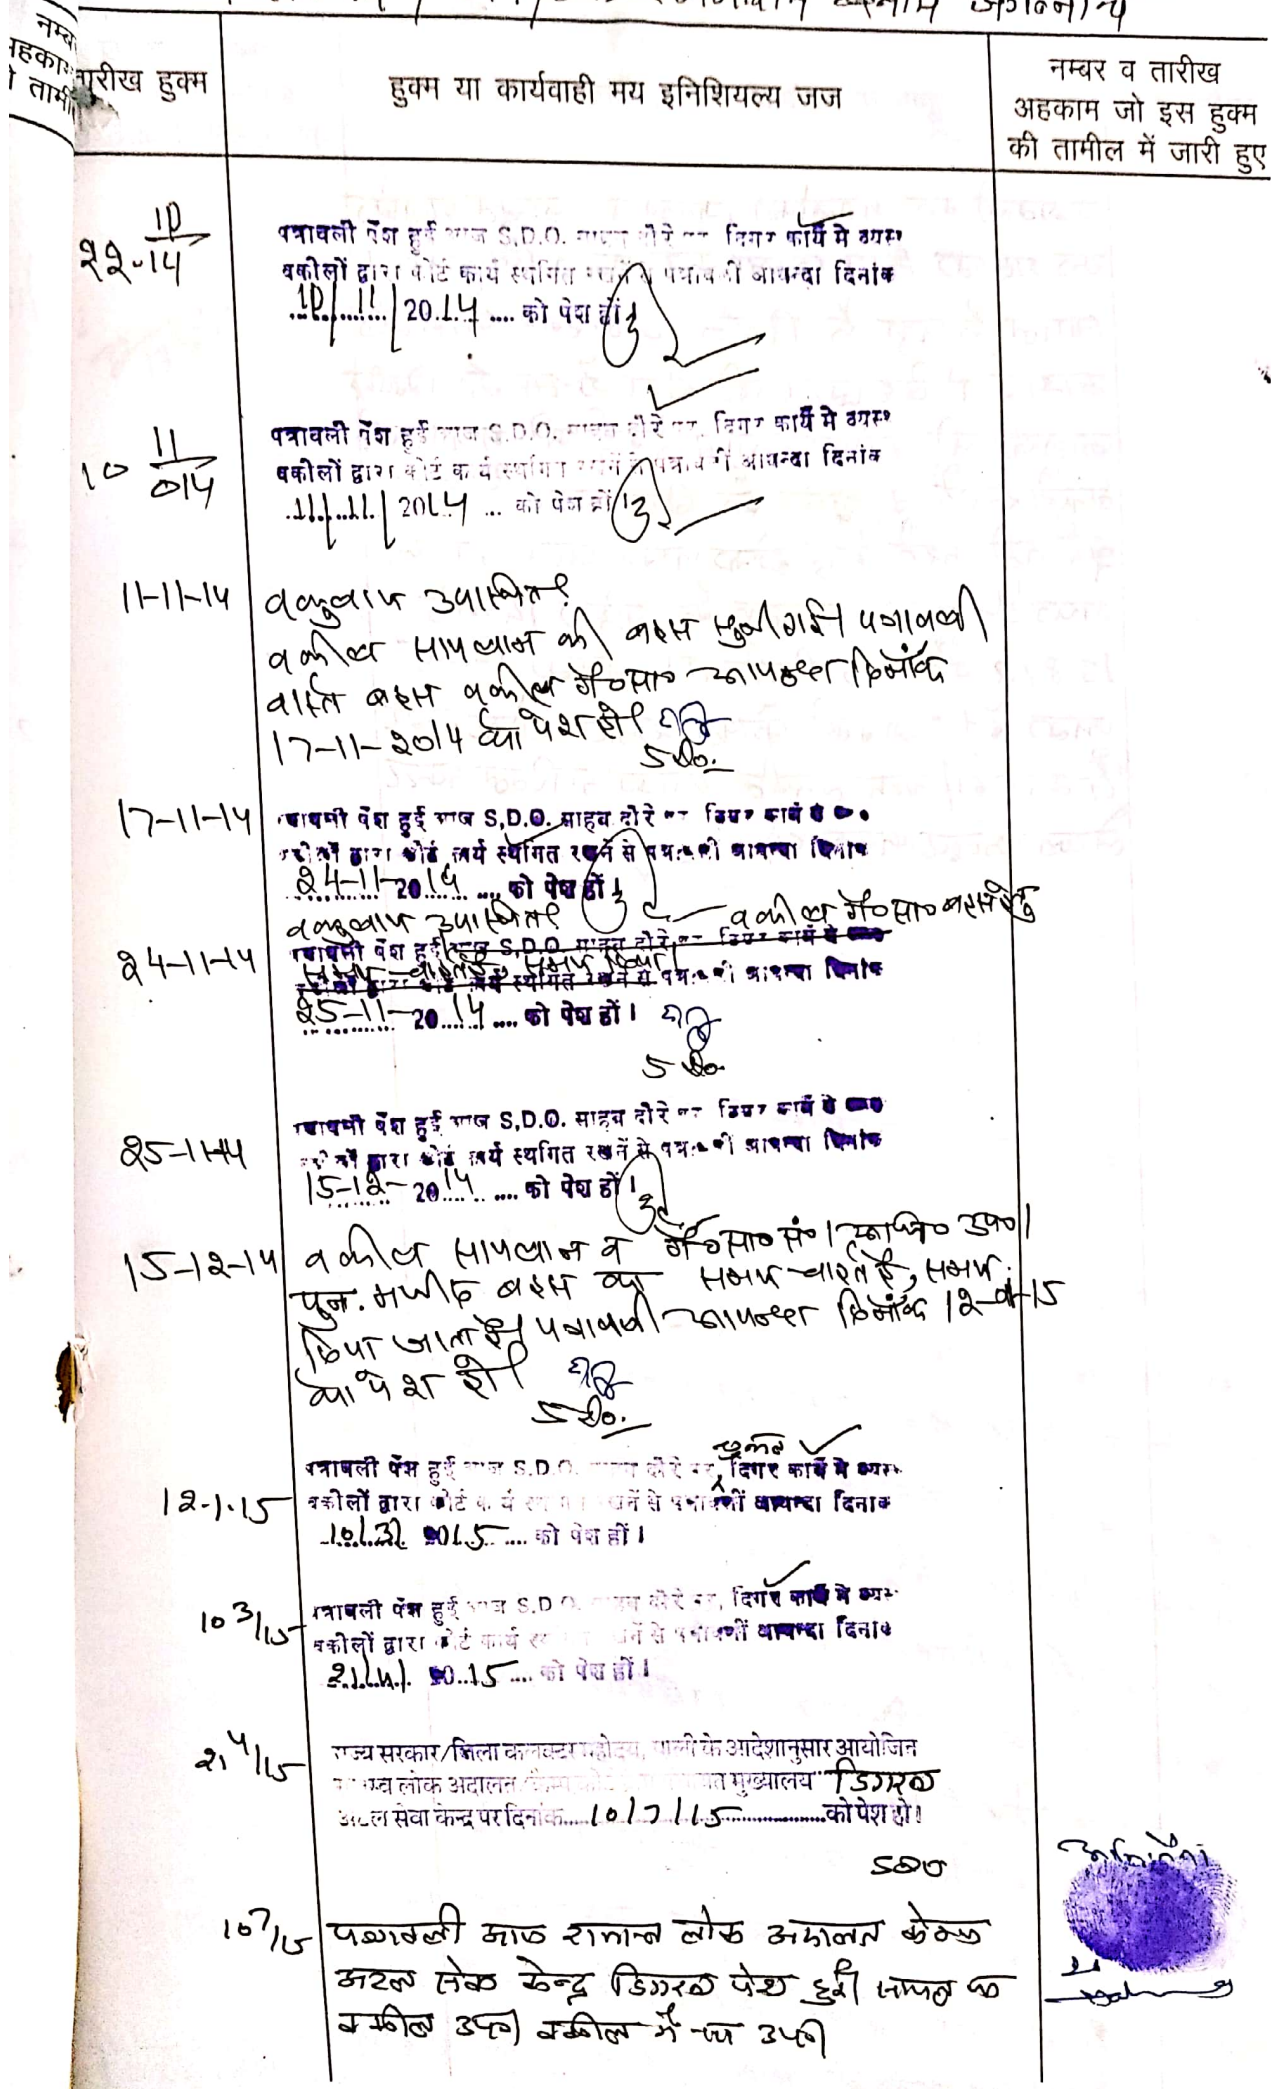 बनाम जगन्नाथ
तारीख हुक्म
हुक्म या कार्यवाही मय इनिशियल्य जज
नम्बर व तारीख
अहकाम जो इस हुक्म
की तामील में जारी हुए
22-10/14
पत्रावली पेश हुई आज S.D.O. साहब दौरे पर दिगर कार्य मे व्यस्त
वकीलों द्वारा कोर्ट कार्य स्थगित रखनें से पत्रावली आयन्दा दिनांक
10/11/2014 .... को पेश हों।
10 11/014
पत्रावली पेश हुई आज S.D.O. साहब दौरे पर, दिगर कार्य मे व्यस्त
वकीलों द्वारा कोर्ट कार्य स्थगित रखनें से पत्रावली आयन्दा दिनांक
11/11/2014 ... को पेश हों।
11-11-14
वकुलाय उपस्थित।
वकील सायलान की बहस सुनी गई। पत्रावली
वास्ते बहस वकील गै०सा० आयन्दा दिनाँक
17-11-2014 को पेश हो।
SDO.
17-11-14
पत्रावली पेश हुई आज S.D.O. साहब दौरे पर दिगर कार्य मे
वकीलों द्वारा कोर्ट कार्य स्थगित रखनें से पत्रावली आयन्दा दिनांक
24-11-2014 .... को पेश हों।
वकुलाय उपस्थित। वकील गै०सा० बहस हेतु
24-11-14
पत्रावली पेश हुई आज S.D.O. साहब दौरे पर दिगर कार्य मे
समय चाहते है, समय दिया।
वकीलों द्वारा कोर्ट कार्य स्थगित रखनें से पत्रावली आयन्दा दिनांक
25-11-2014 .... को पेश हों।
SDO
25-11-14
पत्रावली पेश हुई आज S.D.O. साहब दौरे पर दिगर कार्य मे
वकीलों द्वारा कोर्ट कार्य स्थगित रखनें से पत्रावली आयन्दा दिनांक
15-12-2014 .... को पेश हों।
15-12-14
वकील सायलान व गै०सा० सं०1 उप०।
पुन. मजीद बहस का समय चाहते है, समय
दिया जाता है। पत्रावली आयन्दा दिनाँक 12-01-15
को पेश हो।
SDO.
12-1-15
पत्रावली पेश हुई आज S.D.O. साहब दौरे पर, दिगर कार्य मे व्यस्त
वकीलों द्वारा कोर्ट कार्य स्थगित रखनें से पत्रावली आयन्दा दिनांक
10/3/2015 .... को पेश हों।
10 3/15
पत्रावली पेश हुई आज S.D.O. साहब दौरे पर, दिगर कार्य मे व्यस्त
वकीलों द्वारा कोर्ट कार्य स्थगित रखनें से पत्रावली आयन्दा दिनांक
21/4/2015 .... को पेश हों।
21 4/15
राज्य सरकार/जिला कलक्टर महोदय, पाली के आदेशानुसार आयोजित
राजस्व लोक अदालत मुख्यालय डिगरळ
अटल सेवा केन्द्र पर दिनांक.....10/7/15...............को पेश हो।
SDO
10 7/15
पत्रावली आज राजस्व लोक अदालत केम्प
अटल सेवा केन्द्र डिगरळ पेश हुई। सायल के
वकील उप०। वकील गै सा उप०।